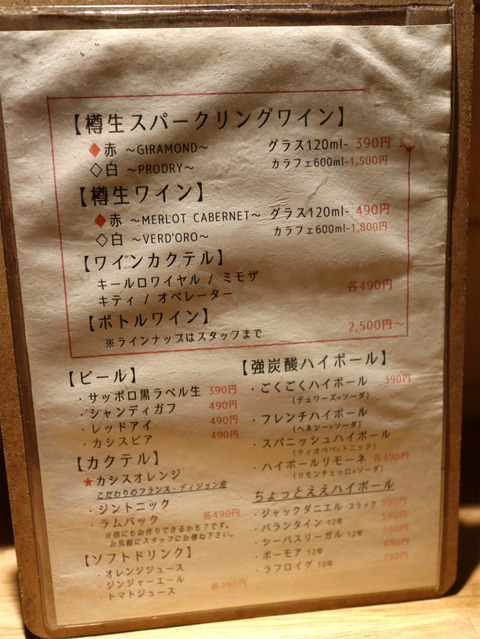 【樽生スパークリングワイン】
◆赤 ～GIRAMOND～ グラス120ml- 390円
◇白 ～PRODRY～ カラフェ600ml-1,500円
【樽生ワイン】
◆赤 ～MERLOT CABERNET～ グラス120ml- 490円
◇白 ～VERD'ORO～ カラフェ600ml-1,800円
【ワインカクテル】
キールロワイヤル / ミモザ
キティ / オペレーター 各490円
【ボトルワイン】
※ラインナップはスタッフまで 2,500円～
【ビール】
・サッポロ黒ラベル生 390円
・シャンディガフ 490円
・レッドアイ 490円
・カシスビア 490円
【カクテル】
★カシスオレンジ
こだわりのフランス・ディジョン産
・ジントニック
・ラムバック 各490円
※他にもお作りできるかも?です。
お気軽にスタッフにお尋ね下さい。
【ソフトドリンク】
・オレンジジュース
・ジンジャーエール
・トマトジュース 各290円
【強炭酸ハイボール】
・ごくごくハイボール 390円
(デュワーズ×ソーダ)
・フレンチハイボール
(ヘネシー×ソーダ)
・スパニッシュハイボール
(ティオペペ×トニック)
・ハイボールリモーネ 各490円
(リモンチェッロ×ソーダ)
ちょっとええハイボール
・ジャックダニエル ブラック 590円
・バランタイン 12年 590円
・シーバスリーガル 12年 590円
・ボーモア 12年 690円
・ラフロイグ 10年